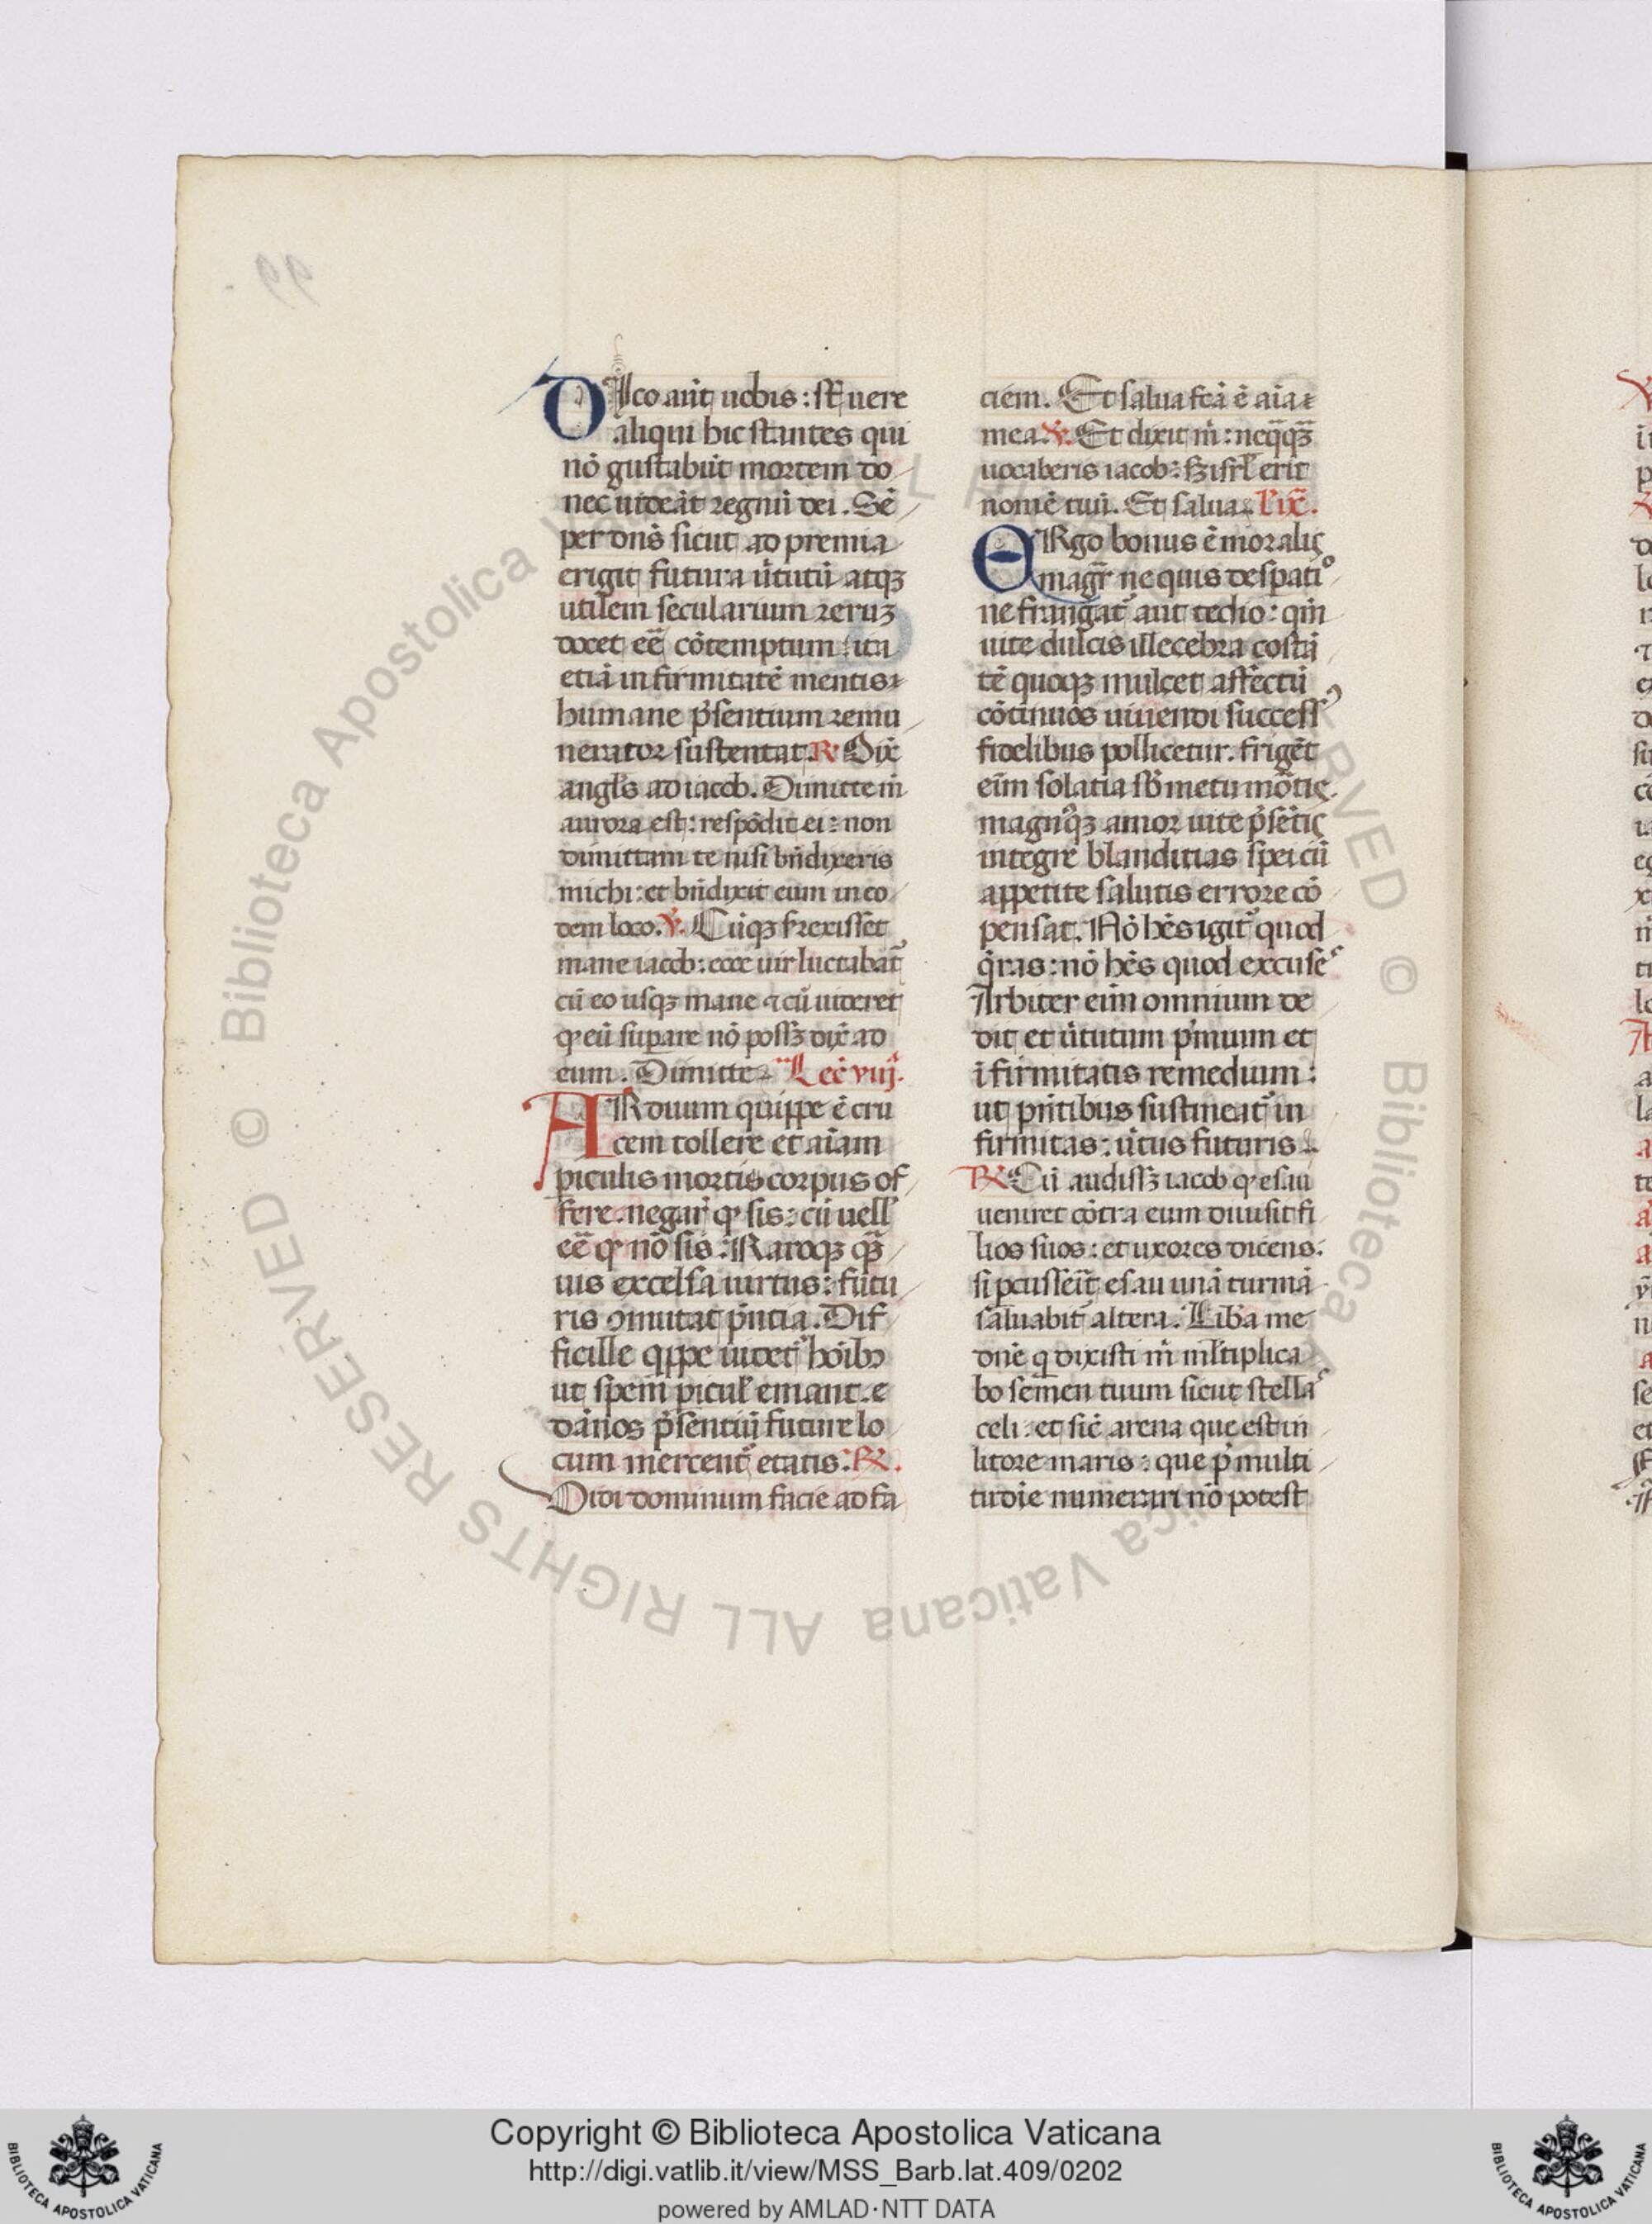 DIco aūt uobis : st̄ uere
aliqui hic stantes qui
nō gustabūt mortem do
nec uideāt regnū dei . Sē
per dn̄s sicut ad premia
erigit futura ūtutū atqꝫ
utilem secularium reruꝫ
docet eē cōtemptum : ita
etiā in firmitatē mentis
humane p̄sentium remu
nerator sustentat. R. Dix̄
angl̄s ad iacob. Dimitte m̄
aurora est : respōdit ei : non
dimittam te nisi bn̄dixeris
michi : et bn̄dixit eum in eo
dem loco. V. Cūqꝫ surrexisset
mane iacob : ecce uir luctabat̄
cū eo usqꝫ mane ⁊ cū uideret
ꝙ eū suꝑare nō possꝫ dix̄ ad
eum . Dimitte. Lec̄ viij.
ARduum quippe ē cru
cem tollere et aīam
ꝑiculis mortis corpus of
fere. negar̄ ꝙ sis : cū uell̄
eē ꝙ nō sis : Raroqꝫ qꝫ̄
uis excelsa uirtus : futu
ris ꝯmutat p̄ntia . Dif
ficille qppe uidet̄ hoībꝫ
ut spem ꝑicul̄ emant. e
dānos p̄sentiū future lo
cum mercent̄ etatis. R.
Uidi dominum facie ad fa
ciem. Et salua fc̄ā ē aīa
mea. V. Et dixit m̄ : neq̄qꝫ̄
uocaberis iacob : sꝫ isrl̄ erit
nomē tuū. Et salua. L. ix.
ERgo bonus ē moralis
magr̄ ne quis desꝑatio
ne frangat̄ aut tedio : qm̄
uite dulcis illecebra costā
tē quoqꝫ mulcet affectū
cōtinuos uiuendi success
fidelibus pollicetur. frigēt
eīm solatia sb̄ metu mōtis.
magnꝰqꝫ amor uite p̄sētis
integre blanditias spei cū
appetite salutis errore cō
pensat. Nō hēs igit̄ quod
q̄ras : nō hēs quod excuses
Arbiter eīm omnium de
dit et ūtutum p̄mium et
īfirmitatis remedium :
ut pn̄tibus sustineat̄ in
firmitas : ūtus futuris.
R. Cū audissꝫ iacob ꝙ esau
ueniret cōtra eum diuisit fi
lios suos : et uxores dicens :
si ꝑcusseit̄ esau unā turmā
saluabit̄ altera. Lib̄a me
dn̄e q dixisti m̄ ml̄tiplica
bo semen tuum sicut stellas
celi : et sic̄ arena que est in
litore maris : que p̄ multi
tudīe numerari nō potest
Copyright © Biblioteca Apostolica Vaticana
http://digi.vatlib.it/view/MSS_Barb.lat.409/0202
powered by AMLAD·NTT DATA
© Biblioteca Apostolica Vaticana ALL RIGHTS RESERVED
© Biblioteca Apostolica Vaticana ALL RIGHTS RESERVED
BIBLIOTECA APOSTOLICA VATICANA
BIBLIOTECA APOSTOLICA VATICANA